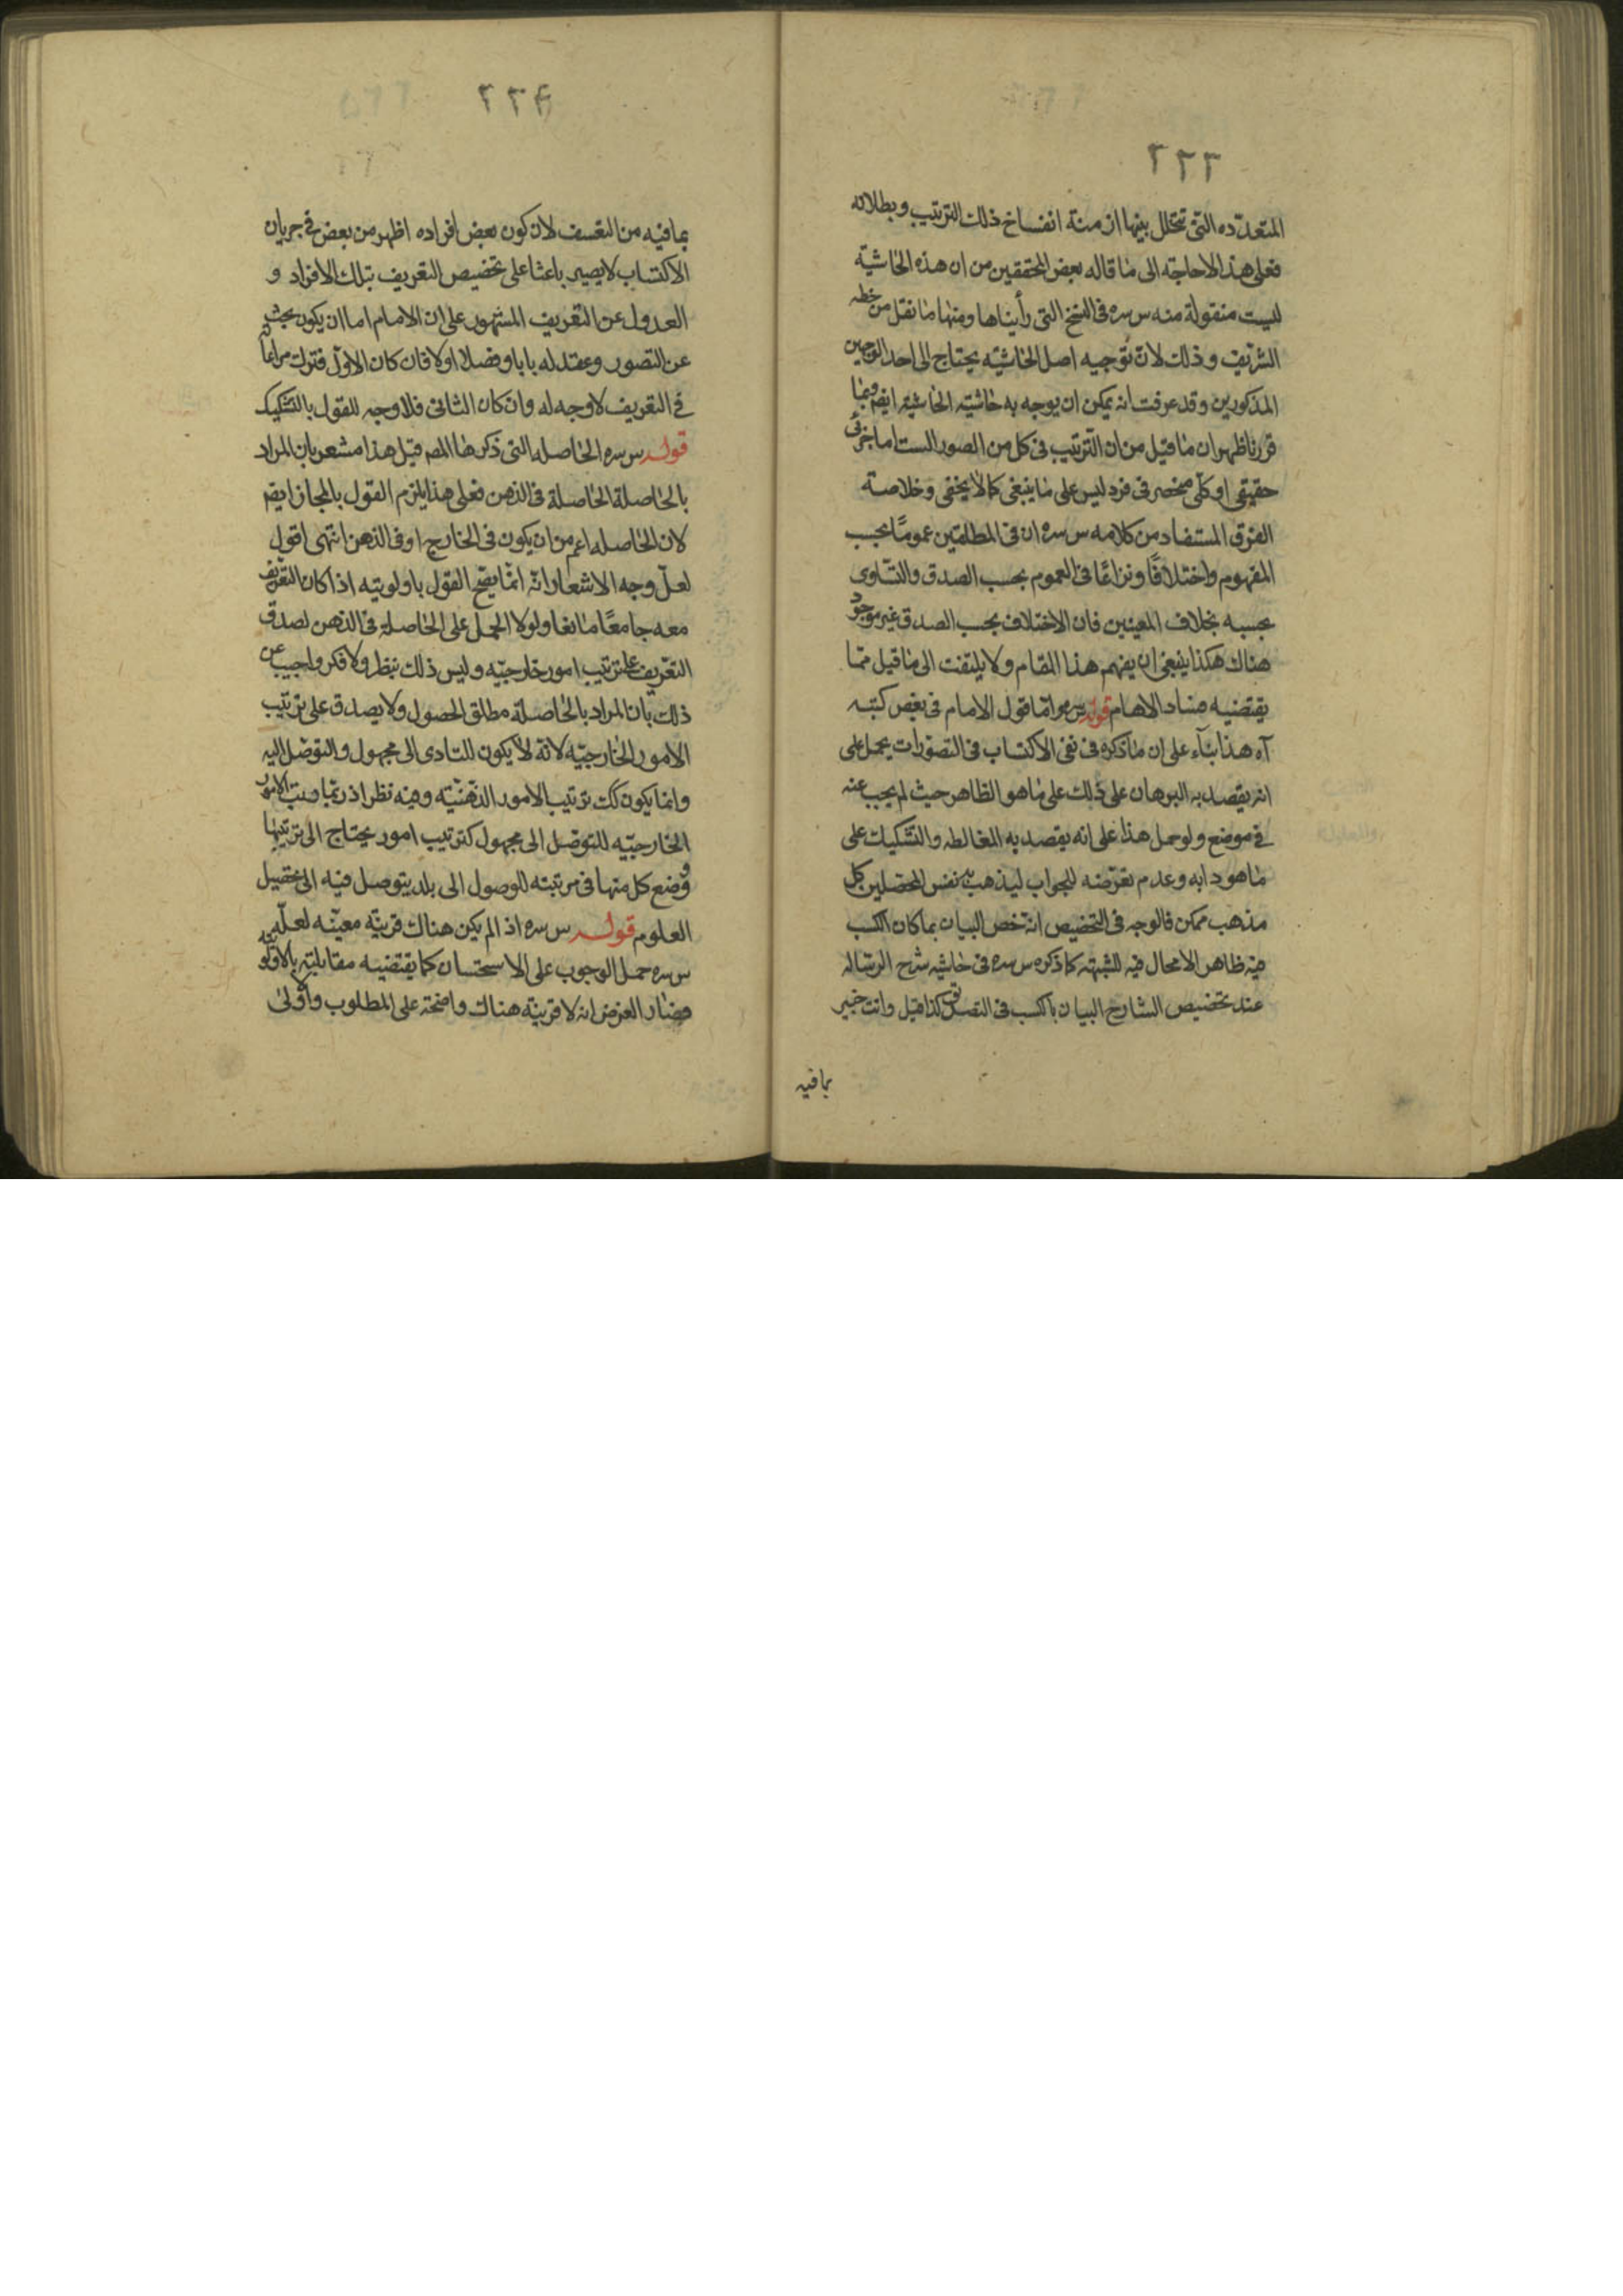 ٢٢٣
المتعدّده التى تتخلل بينها ازمنة انفساخ ذلك الترتيب وبطلانه
فعلى هذا لاحاجة الى ما قاله بعض المحققين من ان هذه الحاشية
ليست منقولة منه س سره فى النسخ التى رأيناها ومنها ما نقل من خطه
الشريف وذلك لان توجيه اصل الحاشيّه يحتاج الى احد الوجهين
المذكورين وقد عرفت انه يمكن ان يوجه به حاشيته الحاشيه ايضا وبما
قررنا ظهر ان ما قيل من ان الترتيب فى كل من الصور الست اما جزئى
حقيقى او كلّى منحصر فى فرد ليس على ما ينبغى كما لا يخفى وخلاصة
الفرق المستفاد من كلامه س سره ان فى المطلقين عمومًا بحسب
المفهوم واختلافًا ونزاعًا فى العموم بحسب الصدق والتساوى
بحسبه بخلاف المعينين فان الاختلاف بحسب الصدق غير موجود
هناك هكذا ينبغى ان يفهم هذا المقام ولا يلتفت الى ما قيل ممّا
يقتضيه فساد الافهام قوله س سره واما قول الامام فى بعض كتبه
آه هذا بناء على ان ما ذكره فى نفى الاكتساب فى التصورات يحمل على
انه يقصد به البرهان على ذلك على ما هو الظاهر حيث لم يجب عنه
فى موضع ولو حمل هذا على انه يقصد به المغالطه والتشكيك على
ما هو دابه وعدم تعرّضه للجواب ليذهب نفس المحصّلين كل
مذهب ممكن فالوجه فى التخصيص انه خص البيان بما كان الكسب
فيه ظاهر الامحال فيه للشبهه كما ذكره س سره فى حاشيه شرح الرساله
عند تخصيص الشارح البيان بالكسب فى التصديق كذا قيل وانت خبير
بما فيه
٢٢٤
بما فيه من التعسف لان كون بعض افراده اظهر من بعض فى جريان
الاكتساب لا يصير باعثا على تخصيص التعريف بتلك الافراد و
العدول عن التعريف المشهور على ان الامام اما ان يكون بحث
عن التصور وعقد له بابا وفصلا اولا فان كان الاول فترك مراعاته
فى التعريف لا وجه له وان كان الثانى فلا وجه للقول بالتشكيك
قوله س سره الحاصله التى ذكرها المصـ قيل هذا مشعر بان المراد
بالحاصلة الحاصلة فى الذهن فعلى هذا يلزم القول بالمجاز ايضا
لان الحاصله اعم من ان يكون فى الخارج او فى الذهن انتهى اقول
لعلّ وجه الاشعار انّه انما يصح القول باولويته اذا كان التعريف
معه جامعًا مانعا ولولا الحمل على الحاصلة فى الذهن لصدق
التعريف على ترتيب امور خارجيّه وليس ذلك بنظر ولا فكر واجيب عن
ذلك بان المراد بالحاصلة مطلق الحصول ولا يصدق على ترتيب
الامور الخارجيّه لانه لا يكون للتادى الى مجهول والتوصّل اليه
وانما يكون كك ترتيب الامور الذهنيّه وفيه نظر اذ ربّما رتب الامور
الخارجيّه للتوصّل الى مجهول كترتيب امور يحتاج الى ترتيبها
ووضع كل منها فى مرتبته للوصول الى بلد يتوصل فيه الى تحصيل
العلوم قوله س سره اذا لم يكن هناك قرينة معيّنه لعلّه
س سره حمل الوجوب على الاستحسان كما يقتضيه مقابلته بالاولوية
فصار الغرض انه لا قرينة هناك واضحة على المطلوب واولى